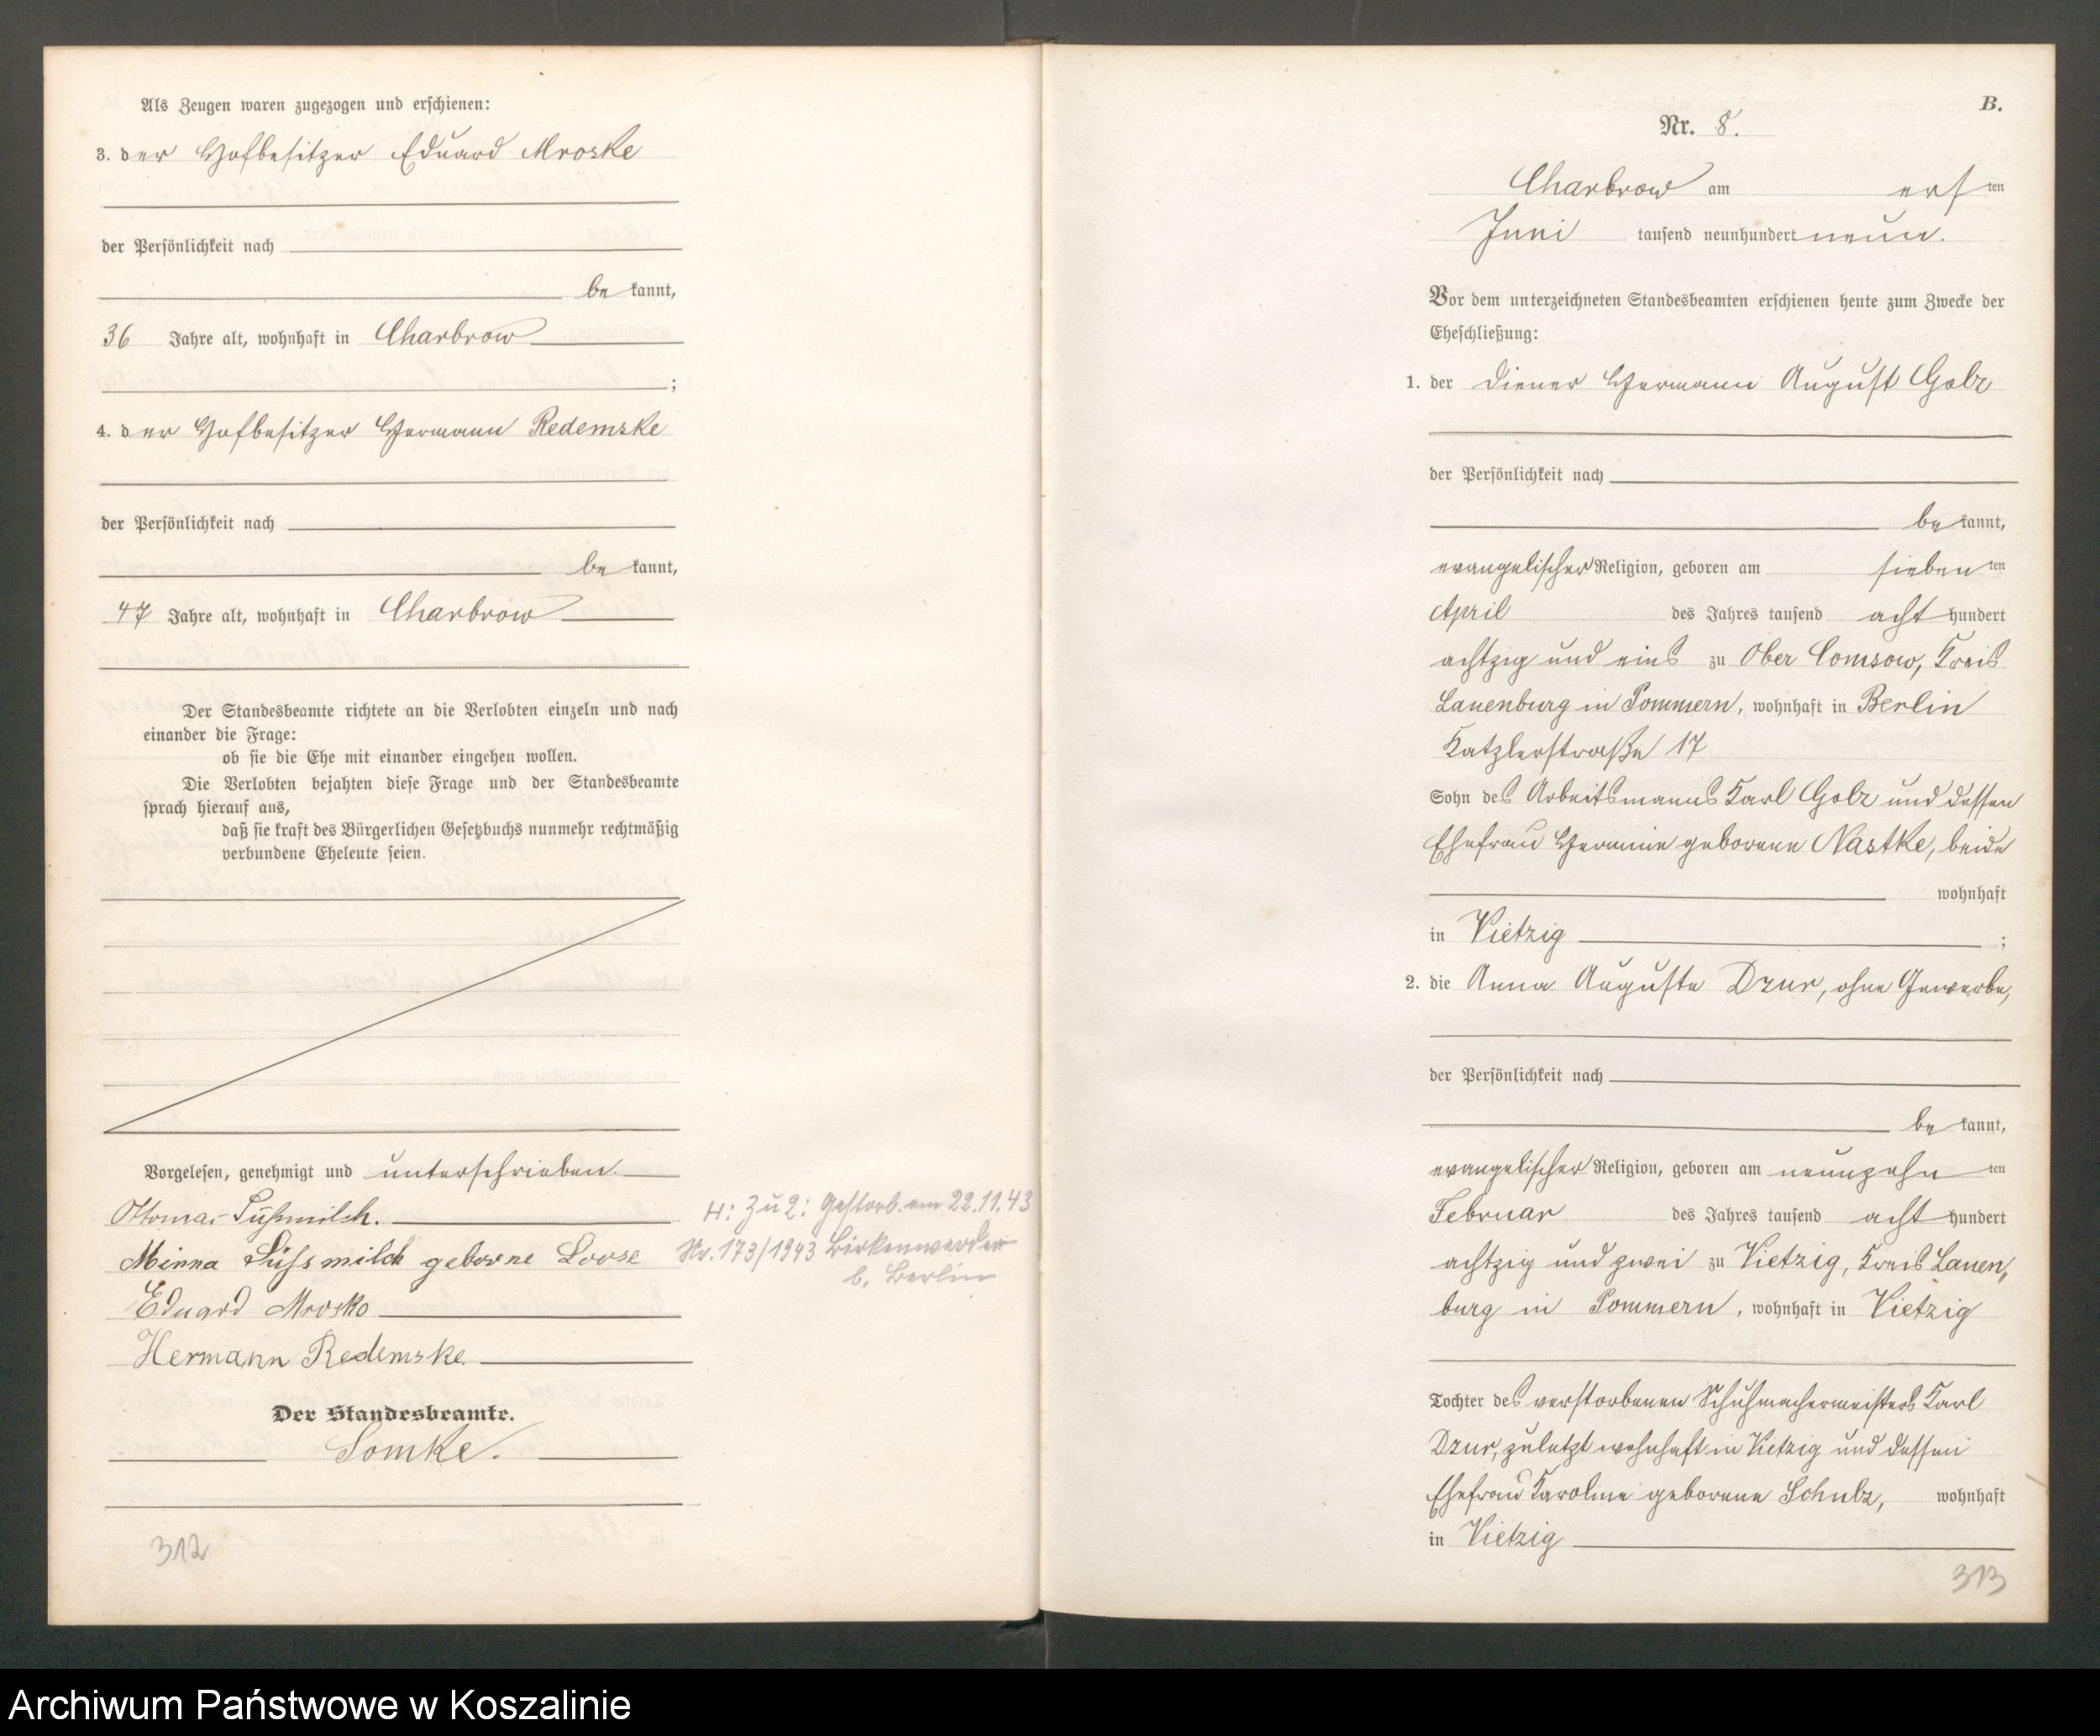 Als Zeugen waren zugezogen und erschienen:
3. der Hofbesitzer Eduard Mroske
der Persönlichkeit nach
be kannt,
36 Jahre alt, wohnhaft in Charbrow
;
4. der Hofbesitzer Hermann Redemske
der Persönlichkeit nach
be kannt,
47 Jahre alt, wohnhaft in Charbrow
Der Standesbeamte richtete an die Verlobten einzeln und nach
einander die Frage:
ob sie die Ehe mit einander eingehen wollen.
Die Verlobten bejahten diese Frage und der Standesbeamte
sprach hierauf aus,
daß sie kraft des Bürgerlichen Gesetzbuchs nunmehr rechtmäßig
verbundene Eheleute seien.
Vorgelesen, genehmigt und unterschrieben.
Süßmilch.
Minna Süssmilch geborne Loose
Eduard Mrosko
Hermann Redemske.
Der Standesbeamte.
Somke.
312
H: Zu 2: Gestorb. am 22.11.43
Nr. 173/1943 Birkenwerder
b. Berlin
B.
Nr. 8.
Charbrow am ersten
Juni tausend neunhundert neun.
Vor dem unterzeichneten Standesbeamten erschienen heute zum Zwecke der
Eheschließung:
1. der Diener Hermann August Golz
der Persönlichkeit nach
be kannt,
evangelischer Religion, geboren am siebenten
April des Jahres tausend acht hundert
achtzig und eins zu Ober Comsow, Kreis
Lauenburg in Pommern, wohnhaft in Berlin
Katzlerstraße 17
Sohn des Arbeitsmanns Karl Golz und dessen
Ehefrau Hermine geborene Nastke, beide
wohnhaft
in Vietzig ;
2. die Anna Auguste Dzur, ohne Gewerbe,
der Persönlichkeit nach
be kannt,
evangelischer Religion, geboren am neunzehnten
Februar des Jahres tausend acht hundert
achtzig und zwei zu Vietzig, Kreis Lauen,
burg in Pommern, wohnhaft in Vietzig
Tochter des verstorbenen Schuhmachermeisters Karl
Dzur, zuletzt wohnhaft in Vietzig und dessen
Ehefrau Karoline geborene Schulz, wohnhaft
in Vietzig
313
Archiwum Państwowe w Koszalinie